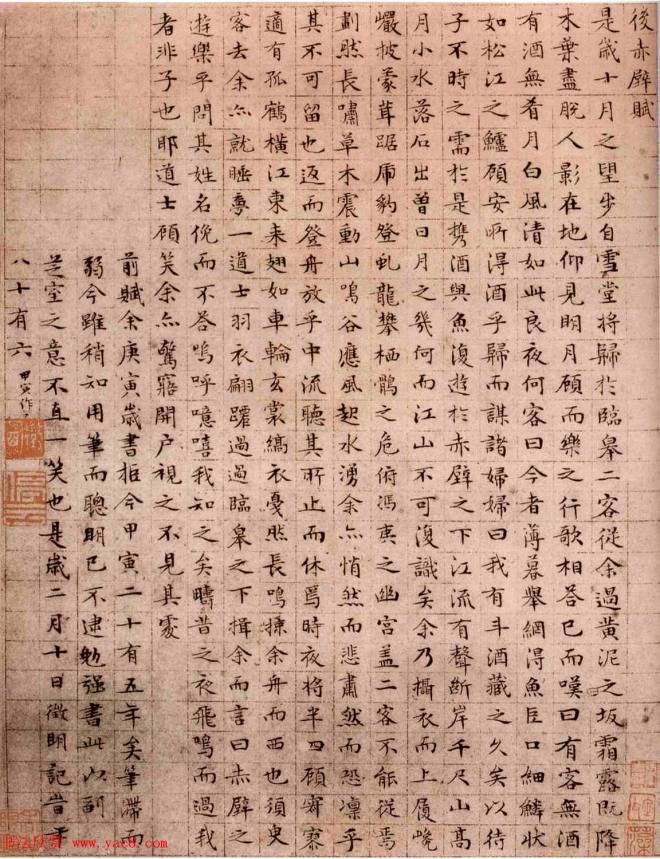 後赤壁賦
是歲十月之望步自雪堂將歸於臨皋二客從余過黃泥之坂霜露既降
木葉盡脫人影在地仰見明月顧而樂之行歌相答已而嘆曰有客無酒
有酒無肴月白風清如此良夜何客曰今者薄暮舉網得魚巨口細鱗狀
如松江之鱸顧安所得酒乎歸而謀諸婦婦曰我有斗酒藏之久矣以待
子不時之需於是攜酒與魚復遊於赤壁之下江流有聲斷岸千尺山高
月小水落石出曾日月之幾何而江山不可復識矣余乃攝衣而上履巉
巖披蒙茸踞虎豹登虬龍攀栖鶻之危俯馮夷之幽宮盖二客不能從焉
劃然長嘯草木震動山鳴谷應風起水湧余亦悄然而悲肅然而恐凜乎
其不可留也返而登舟放乎中流聽其所止而休焉時夜將半四顧寂寥
適有孤鶴橫江東来翅如車輪玄裳縞衣戛然長鳴掠余舟而西也須臾
客去余亦就睡夢一道士羽衣翩躚過過臨皋之下揖余而言曰赤壁之
遊樂乎問其姓名俛而不答嗚呼噫嘻我知之矣疇昔之夜飛鳴而過我
者非子也耶道士顧笑余亦驚寤開戶視之不見其處
前賦余庚寅歲書拒今甲寅二十有五年矣筆滯而
弱今雖稍知用筆而聰明已不逮勉強書此以副
芝室之意不直一笑也是歲二月十日徵明記旹年
八十有六 甲寅作
书法欣赏 www.yac8.com